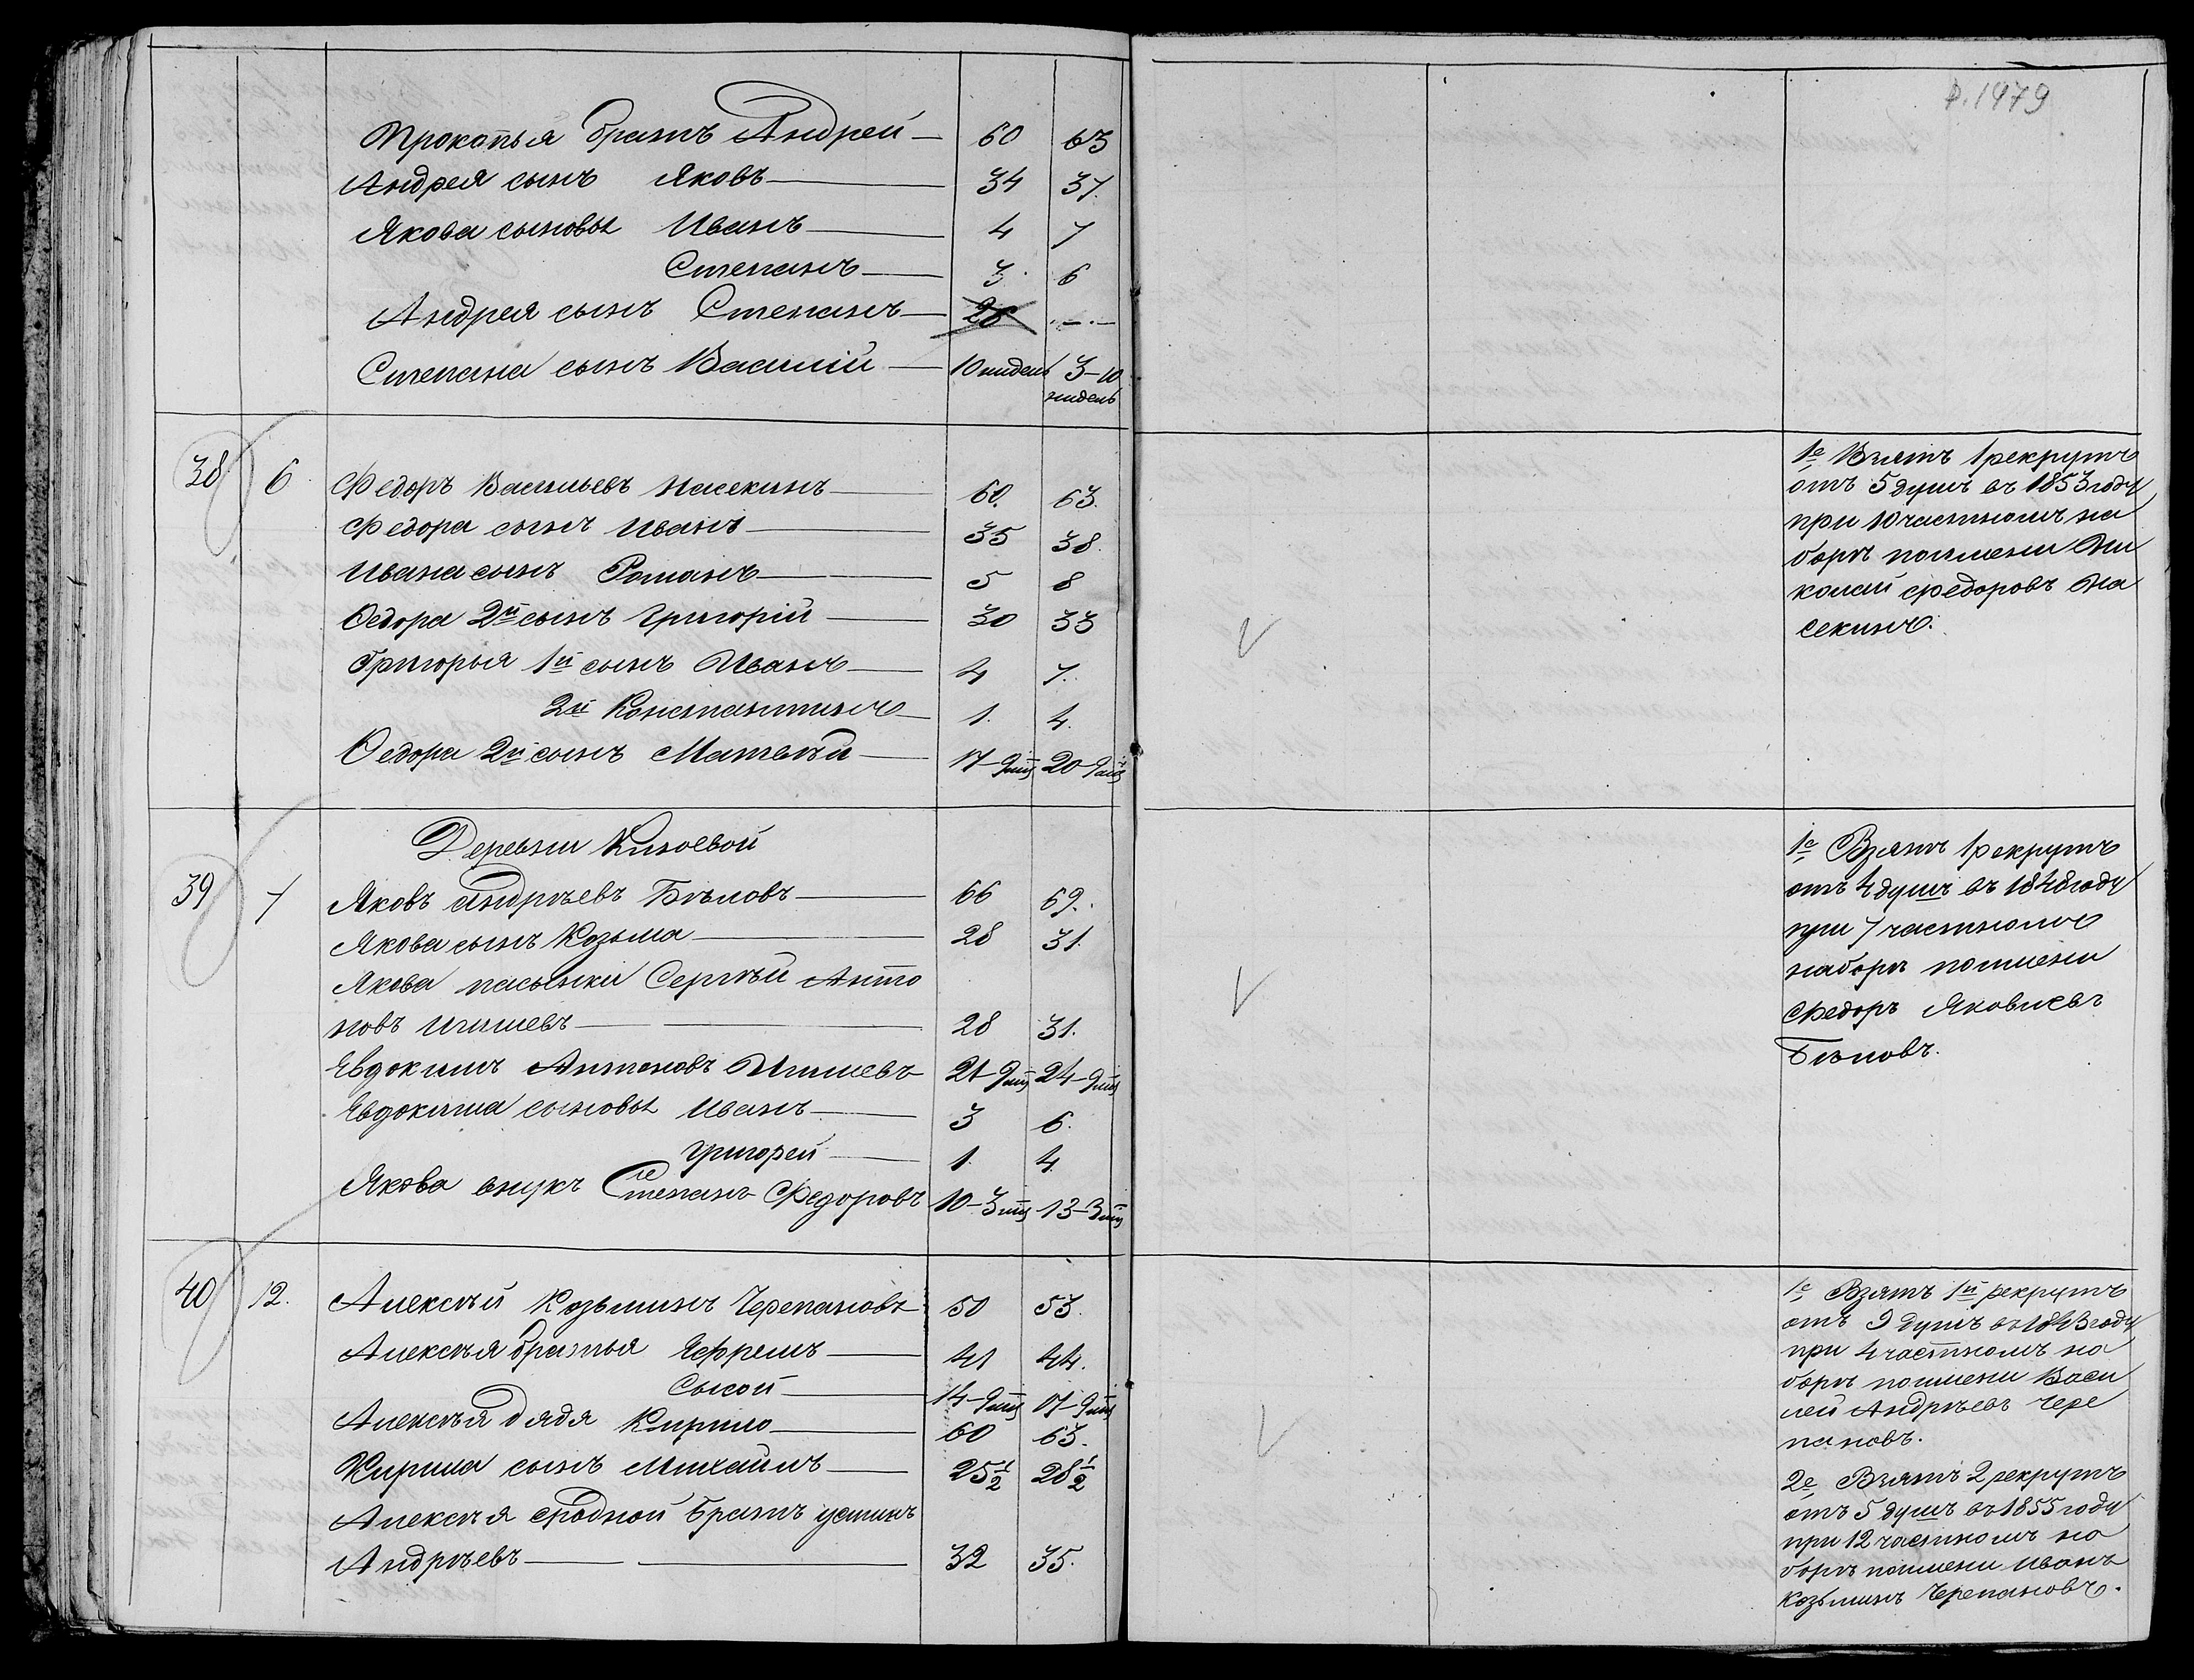 Прокопья братъ Андрей — 60 63
Андрея сынъ Яковъ — 34 37.
Якова сыновья Иванъ — 4 7
Степанъ — 3. 6
Андрея сынъ Степанъ — 28 .—.—
Степана сынъ Василiй — 10 нидель 3–10
нидель
38 6 Федоръ Васильевъ Насекинъ — 60. 63.
Федора сынъ Иванъ — 35 38.
Ивана сынъ Романъ — 5 8
Ѳедора 2й сынъ Григорiй — 30 33
Григорья 1й сынъ Иванъ — 4 7.
2й Констпантинъ — 1. 4.
Ѳедора 2й сынъ Матвѣй — 17–9 мцъ 20–9 мцъ
Деревни
39 7 Яковъ Андрѣевъ Бѣловъ — 66 69.
Якова сынъ Козьма — 28 31.
Якова пасынки Сергѣй Анто
новъ — — 28 31.
Евдокимъ Антоновъ 21–9 мцъ 24–9 мцъ
Евдокима сыновья Иванъ — 3 6.
Григорей — 1. 4.
Якова внукъ Степанъ Федоровъ 10–3 мцъ 13–3 мцъ
40 12. Алексѣй Козьминъ Черепановъ 50 53.
Алексѣя братья Ефремъ — 41 44.
Сысой — 14–9 мцъ 17–9 мцъ
Алексѣя дядя Кирило — 60 63.
Кирила сынъ Михаилъ — 25 1/2 28 1/2
Алексѣя сродной братъ Устинъ
Андрѣевъ — — 32 35.
1е Взятъ 1 рекрутъ
отъ 5 душъ въ 1853 году
при 10 частномъ на
борѣ поимени Ни
колай Федоровъ На
секинъ.
1е Взятъ 1 рекрутъ
отъ 4 душъ въ 1848 году
при 7 частномъ
наборѣ поимени
Федоръ Яковлевъ
Бѣловъ.
1е Взятъ 1й рекрутъ
отъ 9 душъ въ 1843 году
при 4 частномъ на
борѣ поимени Васи
лей Андрѣевъ Чере
пановъ.
2е Взятъ 2 рекрутъ
отъ 5 душъ въ 1855 году
при 12 частномъ на
борѣ поимени Иванъ
Козьминъ Черепановъ.